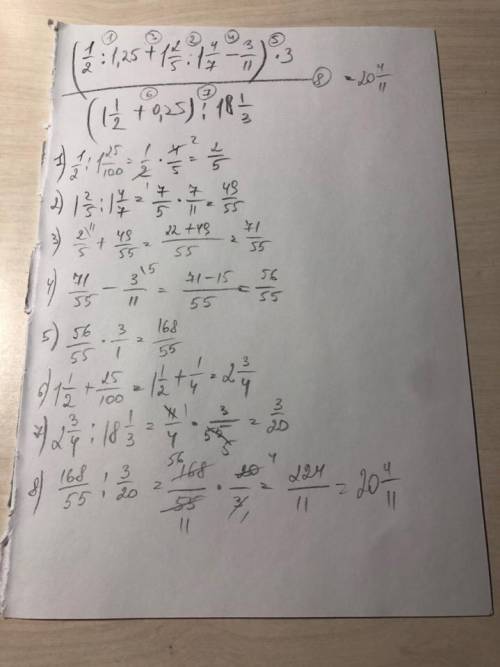 (1/2 : 1,25 + 1 2/5 : 1 4/7 − 3/11) · 3 ① ③ ② ④ ⑤
⑧ = 20 4/11
(1 1/2 + 0,25) : 18 1/3 ⑥ ⑦
1) 1/2 : 1 25/100 = 1/2 · 4/5 = 2/5
2) 1 2/5 : 1 4/7 = 7/5 · 7/11 = 49/55
3) 2/5 + 49/55 = 22+49/55 = 71/55
4) 71/55 − 3/11 = 71−15/55 = 56/55
5) 56/55 · 3/1 = 168/55
6) 1 1/2 + 25/100 = 1 1/2 + 1/4 = 2 3/4
7) 2 3/4 : 18 1/3 = 11/4 · 3/55 = 3/20
8) 168/55 : 3/20 = 168/55 · 20/3 = 224/11 = 20 4/11